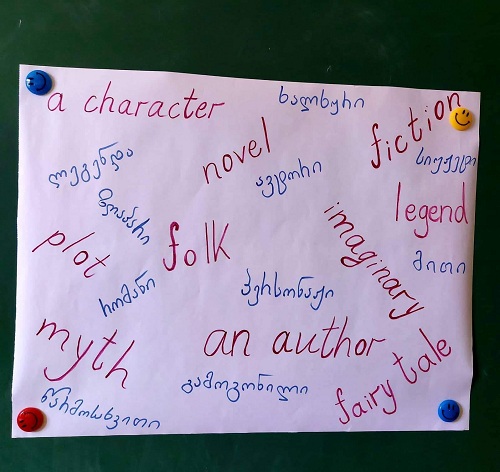 a character
ხალხური
fiction
novel
სიუჟეტი
ლეგენდა
ავტორი
legend
ზღაპარი
imaginary
plot
folk
მითი
რომანი
პერსონაჟი
myth
an author
fairy tale
გამოგონილი
წარმოსახვითი